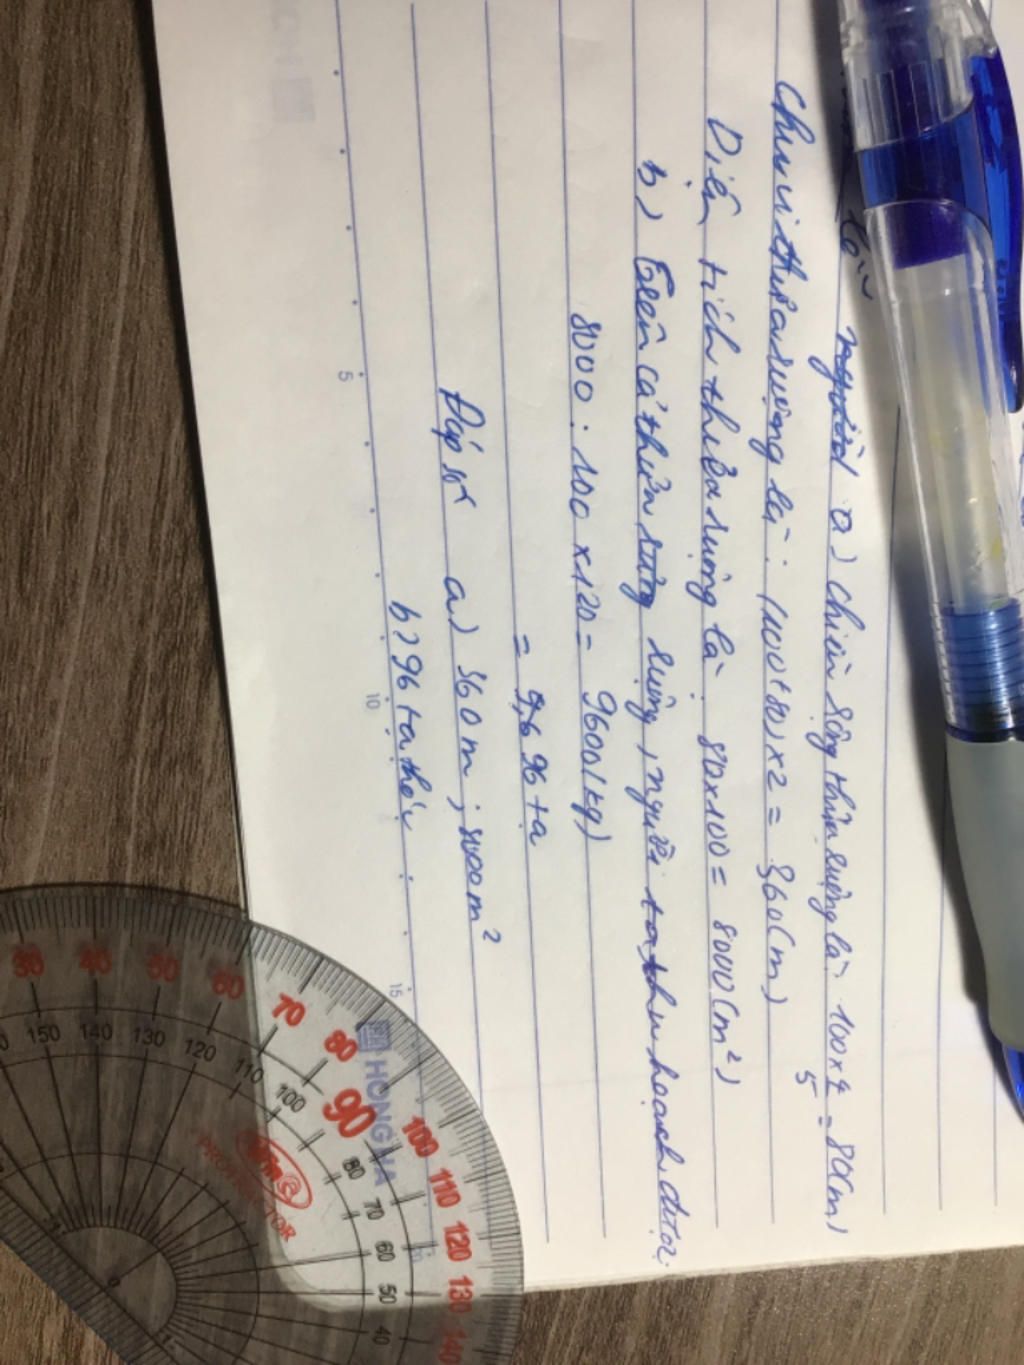 a) Chiều rộng thửa ruộng là 100 x 4/5 = 80(m)
Chu vi thửa ruộng là: (100+80) x 2 = 360(m)
Diện tích thửa ruộng là: 80 x 100 = 8000(m²)
b) Trên cả thửa ruộng ruộng, người ta thu hoạch được
8000 : 100 x 120 = 9600(kg)
= 96 tạ
Đáp số a) 360m; 8000m²
b) 96 tạ thóc
5
10
15
HONG HA
PROTRACTOR
30 40 50 60 70 80 90 100 110 120 130 140
150 140 130 120 110 100 80 70 60 50 40
0